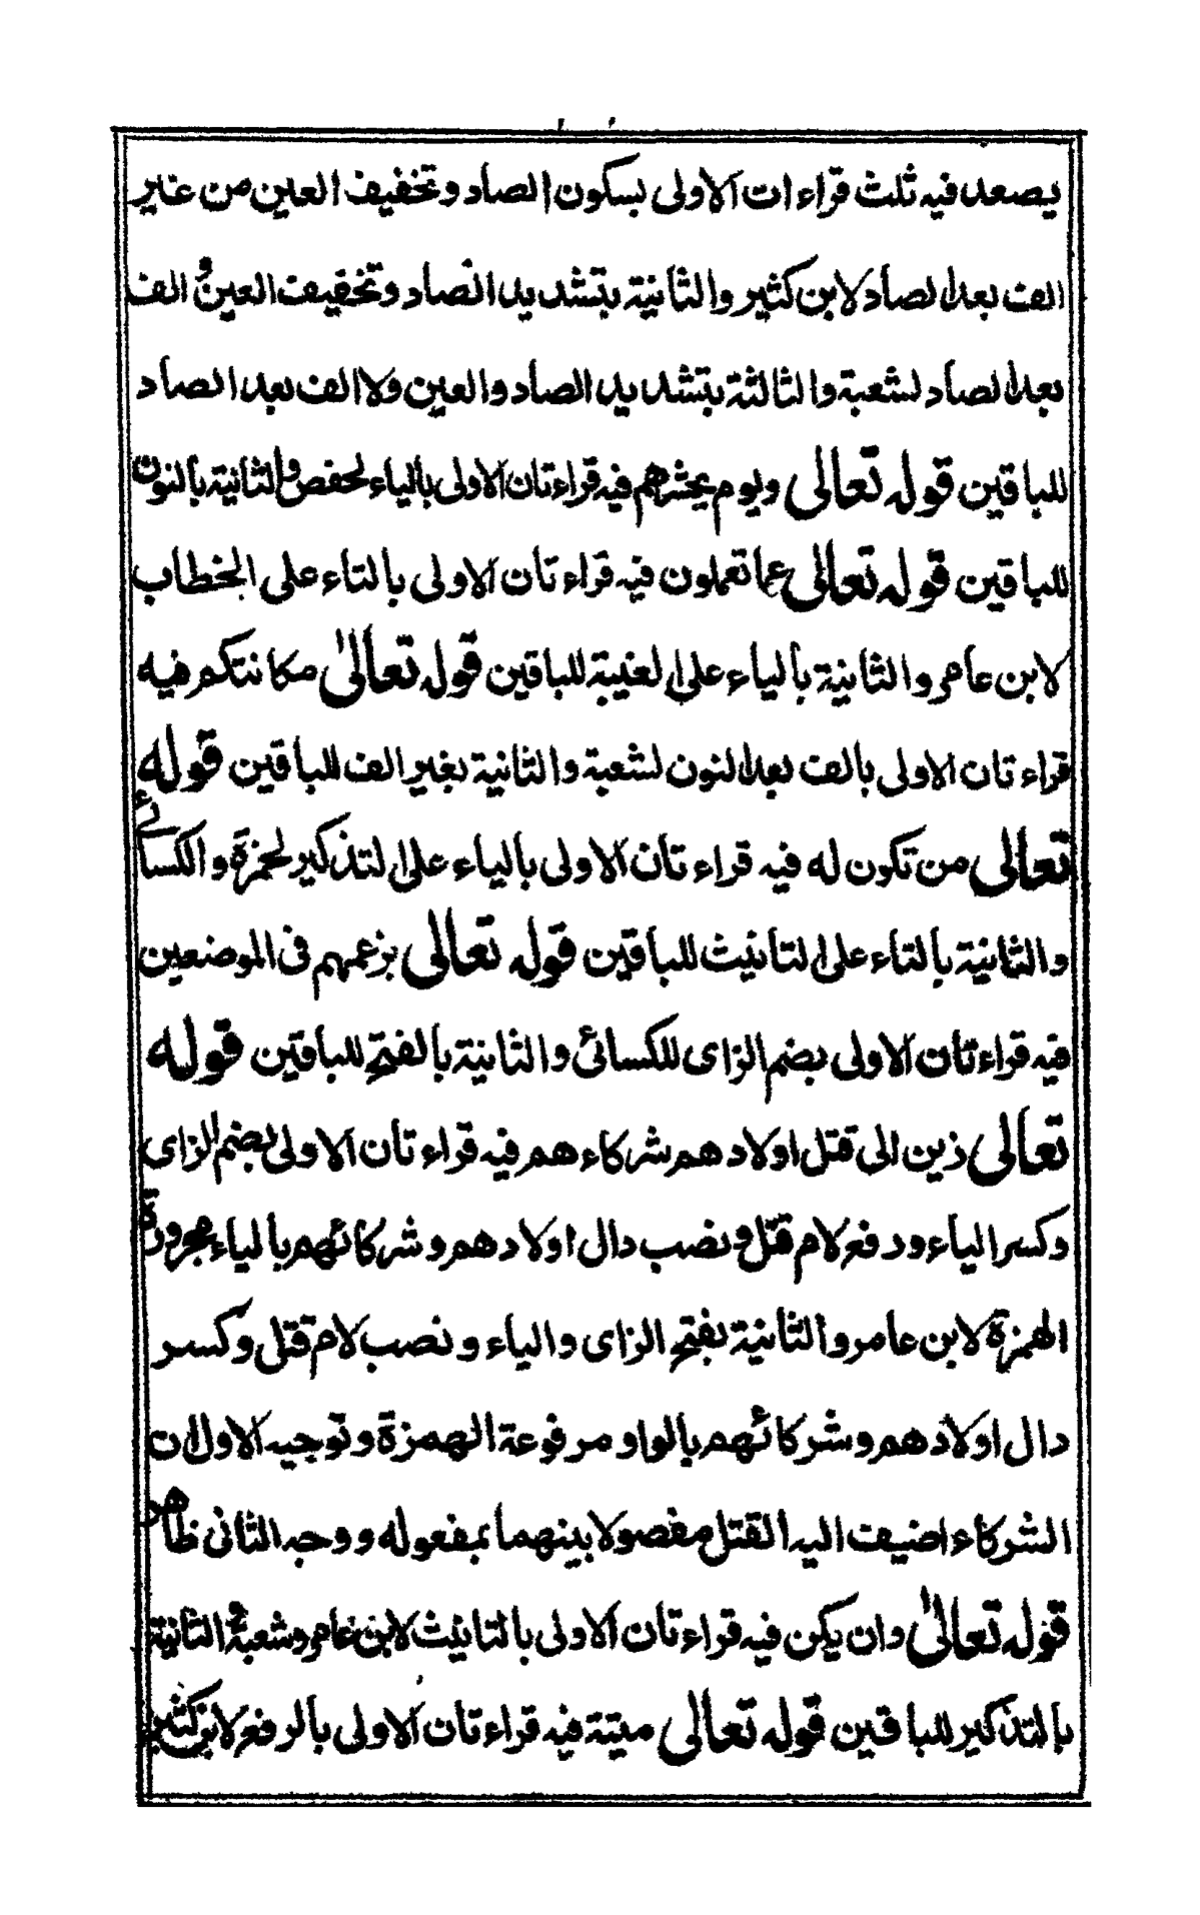 يصعد فيه ثلث قراءات الاولى بسكون الصاد وتخفيف العين من غير
الف بعد الصاد لابن كثير والثانية بتشديد الصاد وتخفيف العين والف
بعد الصاد لشعبة والثالثة بتشديد الصاد والعين ولا الف بعد الصاد
للباقين قوله تعالى ويوم يحشرهم فيه قراءتان الاولى بالياء لحفص والثانية بالنون
للباقين قوله تعالى عما تعملون فيه قراءتان الاولى بالتاء على الخطاب
لابن عامر والثانية بالياء على الغيبة للباقين قوله تعالى مكانتكم فيه
قراءتان الاولى بالف بعد النون لشعبة والثانية بغير الف للباقين قوله
تعالى من تكون له فيه قراءتان الاولى بالياء على التذكير لحمزة والكسائي
والثانية بالتاء على التانيث للباقين قوله تعالى بزعمهم في الموضعين
فيه قراءتان الاولى بضم الزاى للكسائي والثانية بالفتح للباقين قوله
تعالى زين الى قتل اولادهم شركاءهم فيه قراءتان الاولى بضم الزاى
وكسر الياء ورفع لام قتل ونصب دال اولادهم وشركائهم بالياء مجرورة
الهمزة لابن عامر والثانية بفتح الزاى والياء ونصب لام قتل وكسر
دال اولادهم وشركائهم بالواو مرفوعة الهمزة وتوجيه الاول ان
الشركاء اضيف اليه القتل مفصولا بينهما بمفعوله ووجه الثانى ظاهر
قوله تعالى وان يكن فيه قراءتان الاولى بالتانيث لابن عامر وشعبة الثانية
بالتذكير للباقين قوله تعالى ميتة فيه قراءتان الاولى بالرفع لابن كثير